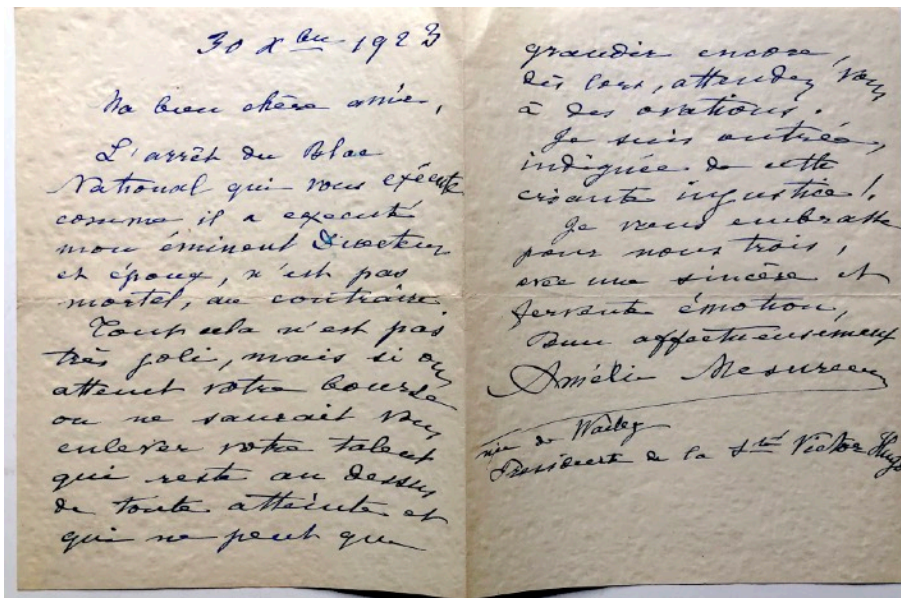 30 Xbre 1923
Ma bien chère amie,
L'arrêt du Bloc
National qui vous exécute
comme il a executé
mon éminent Directeur
et époux, n'est pas
mortel, au contraire
Tout cela n'est pas
très joli, mais si on
atteint votre bourse
on ne saurait vous
enlever votre talent
qui reste au dessus
de toute atteinte et
qui ne peut que
grandir encore,
dès lors, attendez vous
à des ovations.
Je suis outrée,
indignée de cette
criante injustice !
Je vous embrasse
pour nous trois,
avec une sincère et
fervente émotion,
Bien affectueusement
Amélie Mesureur
née de Wailly
Présidente de la Sté Victor Hugo